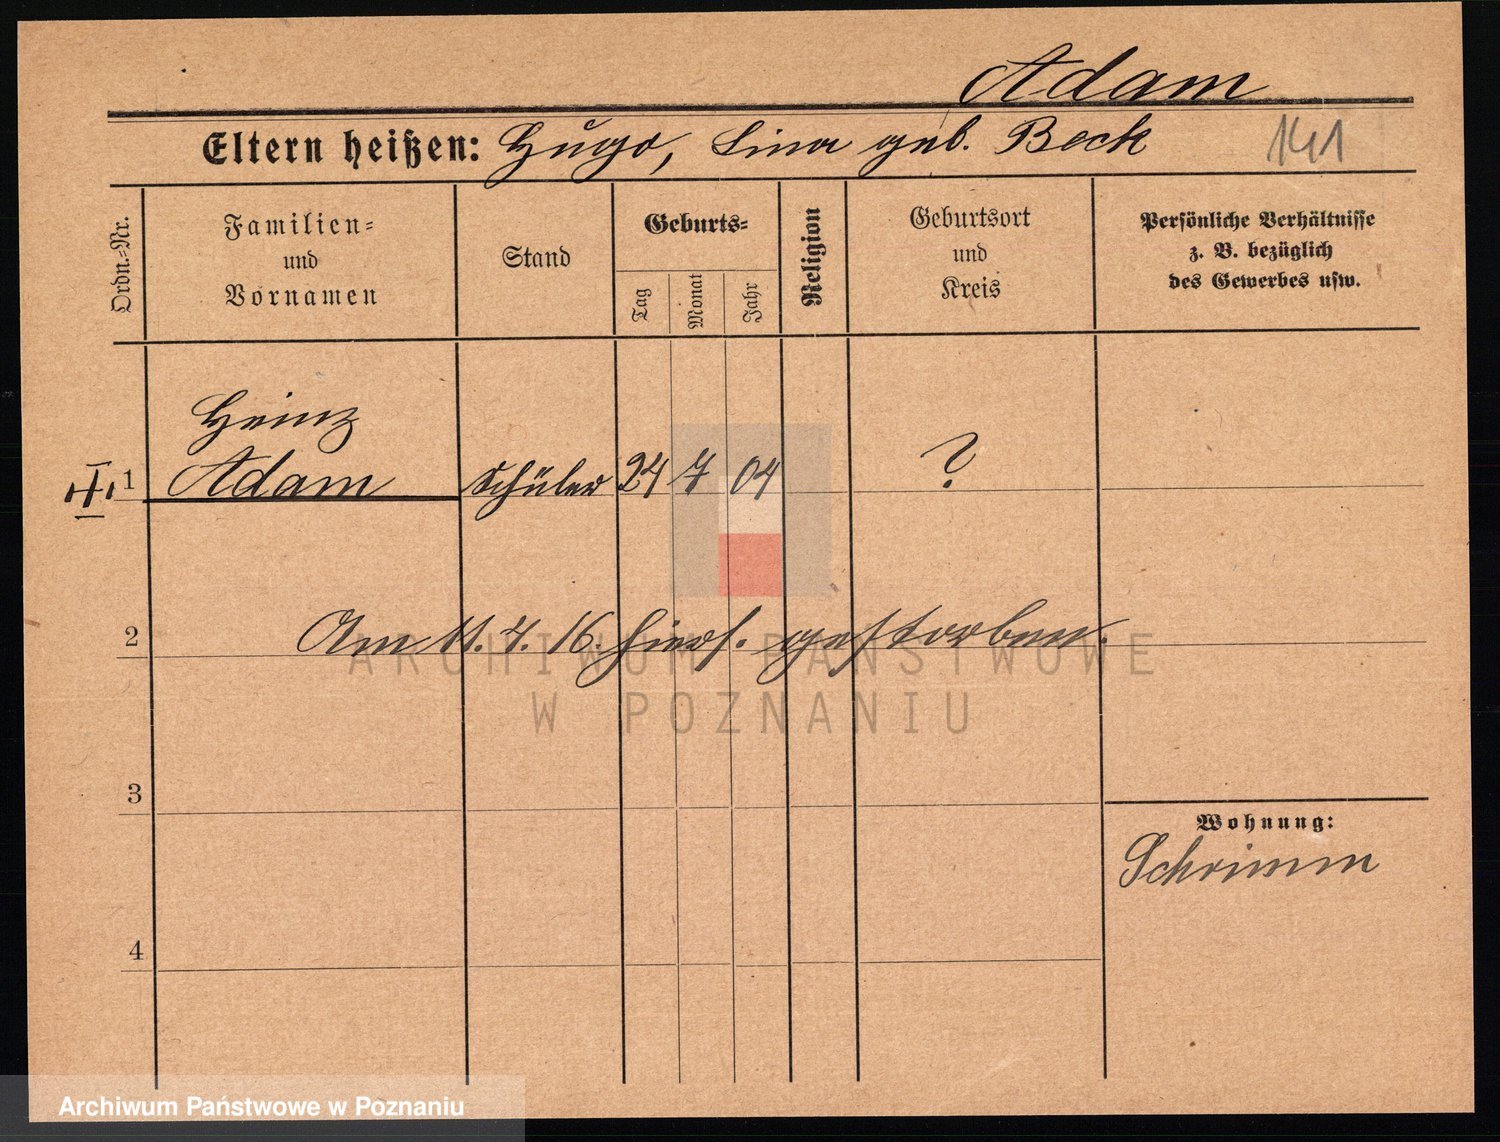 Adam
Eltern heißen: Hugo, Lina geb. Beck
141
Ordn.-Nr.
Familien-
und
Vornamen
Stand
Geburts-
Tag
Monat
Jahr
Religion
Geburtsort
und
Kreis
Persönliche Verhältnisse
z. B. bezüglich
des Gewerbes usw.
Heinz
1 Adam Schüler 24 7 04 ?
2 Am 11. 4. 16. hiers. gestorben.
ARCHIWUM PAŃSTWOWE
W POZNANIU
3
Wohnung:
Schrimm
4
Archiwum Państwowe w Poznaniu